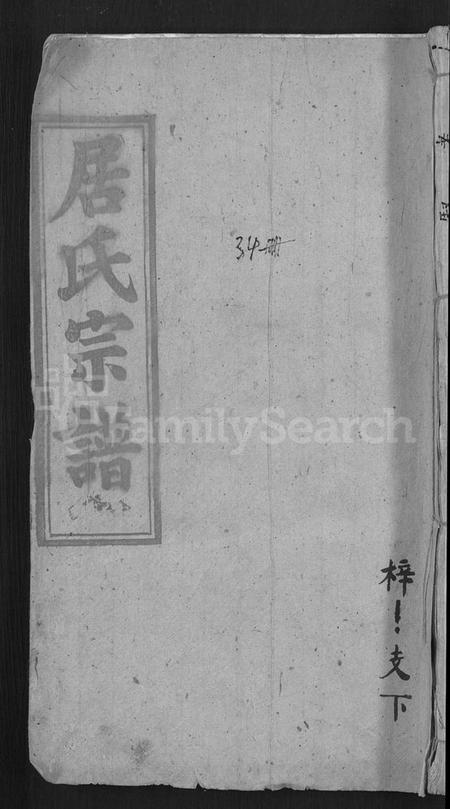 居氏宗譜
34冊
FamilySearch
梓
支下